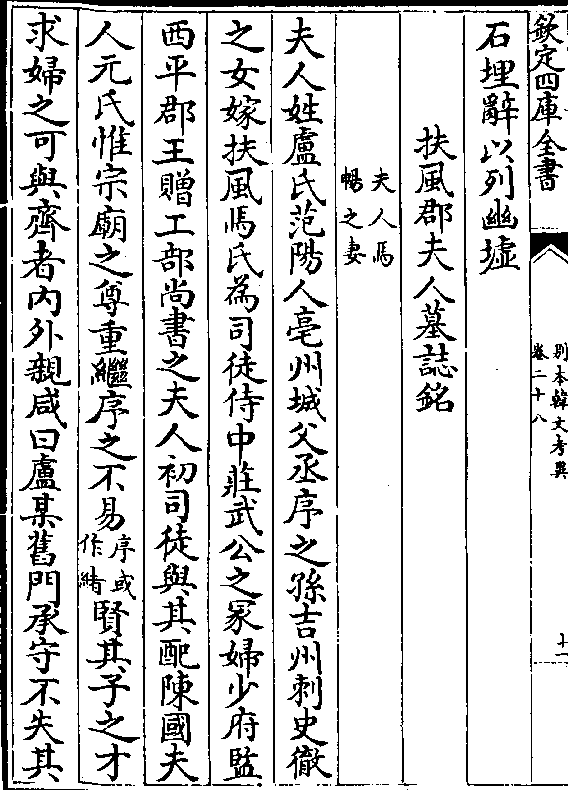 欽定四庫全書
别本韓文考異
卷二十八
十一
石埋辭以列幽墟
扶風郡夫人墓誌銘
夫人馬
暢之妻
夫人姓盧氏范陽人亳州城父丞序之孫吉州刺史徹
之女嫁扶風馬氏為司徒侍中莊武公之冡婦少府監
西平郡王贈工部尚書之夫人初司徒與其配陳國夫
人元氏惟宗廟之尊重繼序之不易序或作緒賢其子之才
求婦之可與齊者内外親咸曰盧某舊門承守不失其